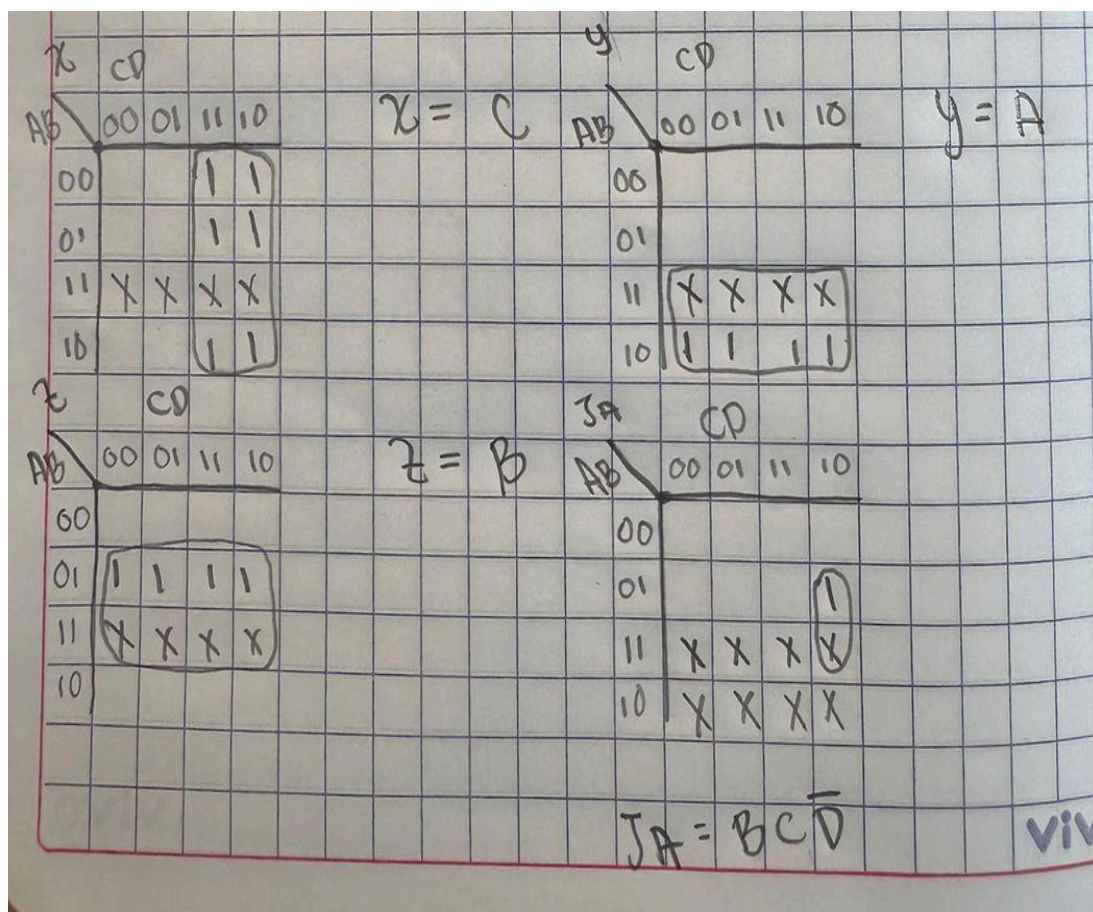 x CD
AB 00 01 11 10
00 1 1
01 1 1
11 X X X X
10 1 1
x = C
y CD
AB 00 01 11 10
00
01
11 X X X X
10 1 1 1 1
y = A
z CD
AB 00 01 11 10
00
01 1 1 1 1
11 X X X X
10
z = B
JA CD
AB 00 01 11 10
00
01 1
11 X X X X
10 X X X X
JA = B C D̅